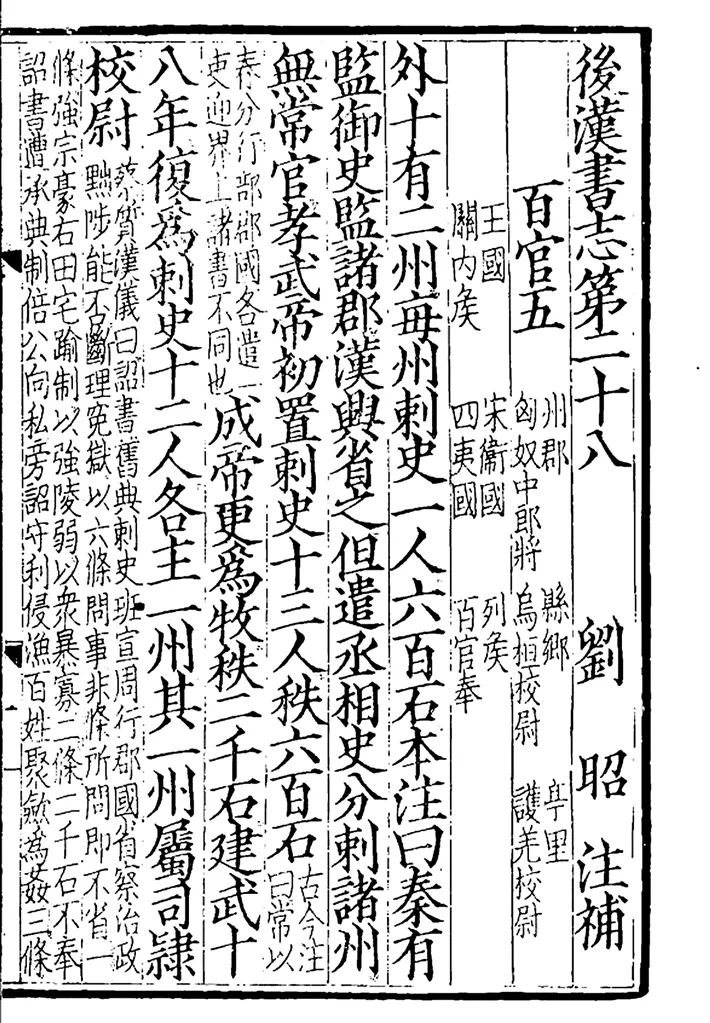 後漢書志第二十八　劉昭注補
百官五　州郡　縣鄉　亭里
匈奴中郎將　烏桓校尉　護羌校尉
王國　宋衞國　列矦
關内矦　四夷國　百官奉
外十有二州毎州刺史一人六百石本注曰秦有
監御史監諸郡漢興省之但遣丞相史分刺諸州
無常官孝武帝初置刺史十三人秩六百石
古今注
曰常以
春分行部郡國各遣一
吏迎界上諸書不同也
成帝更爲牧秩二千石建武十
八年復爲刺史十二人各主一州其一州屬司隸
校尉
蔡質漢儀曰詔書舊典刺史班宣周行郡國省察治政
黜陟能否斷理寃獄以六條問事非條所問即不省一
條強宗豪右田宅踰制以強陵弱以衆暴寡二條二千石不奉
詔書遵承典制倍公向私旁詔守利侵漁百姓聚斂爲姦三條